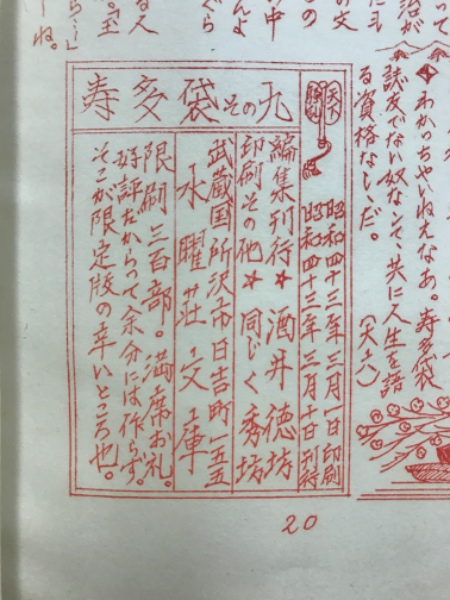 って
治が
たに斗
の文
もの
の中
んよ
ぐら
る人
。至
ね。
わかっちゃいねえなあ。寿多袋
誌友でない奴なンぞ、共に人生を語
る資格なし、だ。
(天六)
寿多袋その九
昭和四十三年三月一日印刷
昭和四十三年三月十日刊行
編集刊行★酒井徳坊
印刷その他★同じく秀坊
武蔵国所沢市日吉町一五五
水曜荘文庫
限刷三百部。満席お礼。
好評だからって余分には作らず。
そこが限定版の辛いところ也。
20